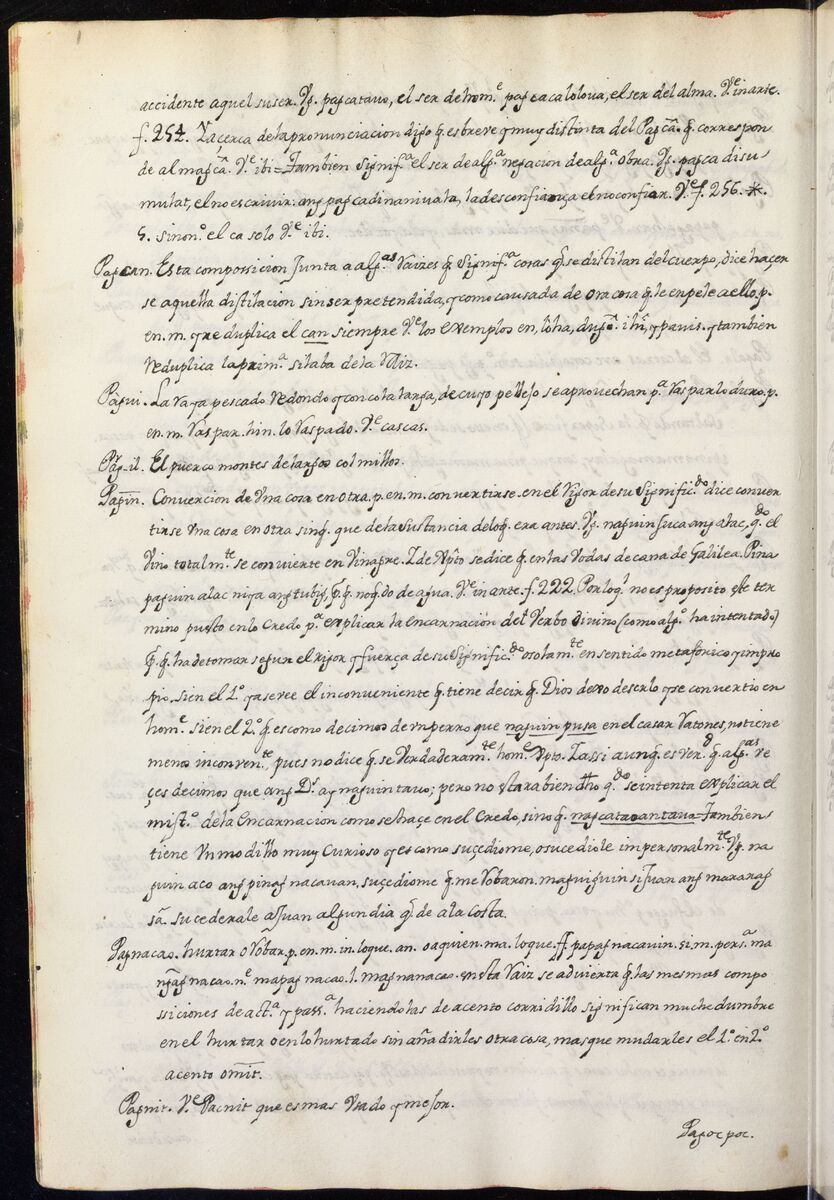 accidente aquel su ser. Vg. pagcatauo, el ser de hom.e pagcacaloloua, el ser del alma. V.e in arte.
f. 254. Y acerca de la pronunciacion digo q̃ es breve y muy distinta del Pagcâ. q̃ correspon
de al magcâ. V.e ibi = Tambien signif.a el ser de alg.a negacion de alg.a obra. Vg. pagca di su
mulat, el no escrivir. ang pagcadinaniuala, la desconfiança el no confiar. V.e f. 256. *.
5. sinon.o el ca solo V.e ibi.
Pagcan. Esta composicion Junta a alg.as Raizes q̃ signif.a cosas q̃ se distilan del cuerpo, dice haçer
se aquella distilacion sin ser pretendida, y como causada de otra cosa q̃ le enpele a ello. p.
en. m. y reduplica el can siempre V.e los exemplos en, lôha, ihî, y pauis. y tambien
reduplica la prim.a silaba de la Raiz.
Pagui. La raya pescado redondo y con cola larga, de cuyo pellejo se aprovechan p.a raspar lo duro. p.
en. m. raspar. hin. lo raspado. V.e cascas.
Pag-il. El puerco montes de largos colmillos.
Pagin. Convercion de una cosa en otra. p. en. m. convertirse. en el rigor de su signific.do dice conver
tirse una cosa en otra sin q̃ que de la sustancia de lo q̃ era antes. Vg. naguin suca ang alac, q.do el
vino total m.te se convierte en vinagre. Y de Xpto se dice q̃ en las vodas de cana de Galilea. Pina
paguin alac niya ang tubig, p.q̃ no q.do de agua. V.e in arte. f. 222. Por lo q̃ no es proposito este ter
mino puesto en lo Credo p.a explicar la encarnacion del Verbo divino (como alg.o ha intentado)
p.q̃ ha de tomar segun el rigor y fuerça de su signific.do o solam.te en sentido metaforico y impro
pio. si en el 1.o ya se ree el inconveniente q̃ tiene decir q̃ Dios dexo deserlo y se convertio en
hom.e si en el 2.o q̃ es como decimos de un perro que naguin pusa en el casar ratones, no tiene
menos inconven.te, pues no dice q̃ se verdaderam.te hom.e Xpto. Y assi aunq̃ es ver.d q̃ alg.as ve
çes decimos que ang D.s ay naguin tauo; pero no estara bien dho q.do se intenta explicar el
mist.o de la Encarnacion como se haçe en el Credo, sino q̃ nagcatauan tauo = Tambien
tiene un modillo muy curioso y es como suçediome, o sucediole impersonal m.te Vg. na
guin aco ang pinagnacauan, suçediome q̃ me robaron. maguiguin si Juan ang mararag
sâ. sucederale a Juan algun dia q̃ de a la costa.
Pagnacao. hurtar o Robar. p. en. m. in. lo que. an. o a quien. ma. lo que. ff papagnacauin. si. m. pers.a ma
n͠gagnacao. n.e mapagnacao. l. magnanacao. en sta Raiz se advierta q̃ las mesmas compo
siciones de act.a y pass.a haciendolas de acento corridillo significan muchedumbre
en el hurtar o en lo hurtado sin añadirles otra cosa, mas que mudarles el 1.o en 2.o
acento omĩt.
Pagnit. V.e Pacnit que es mas usado y mejor.
Pagoc poc.